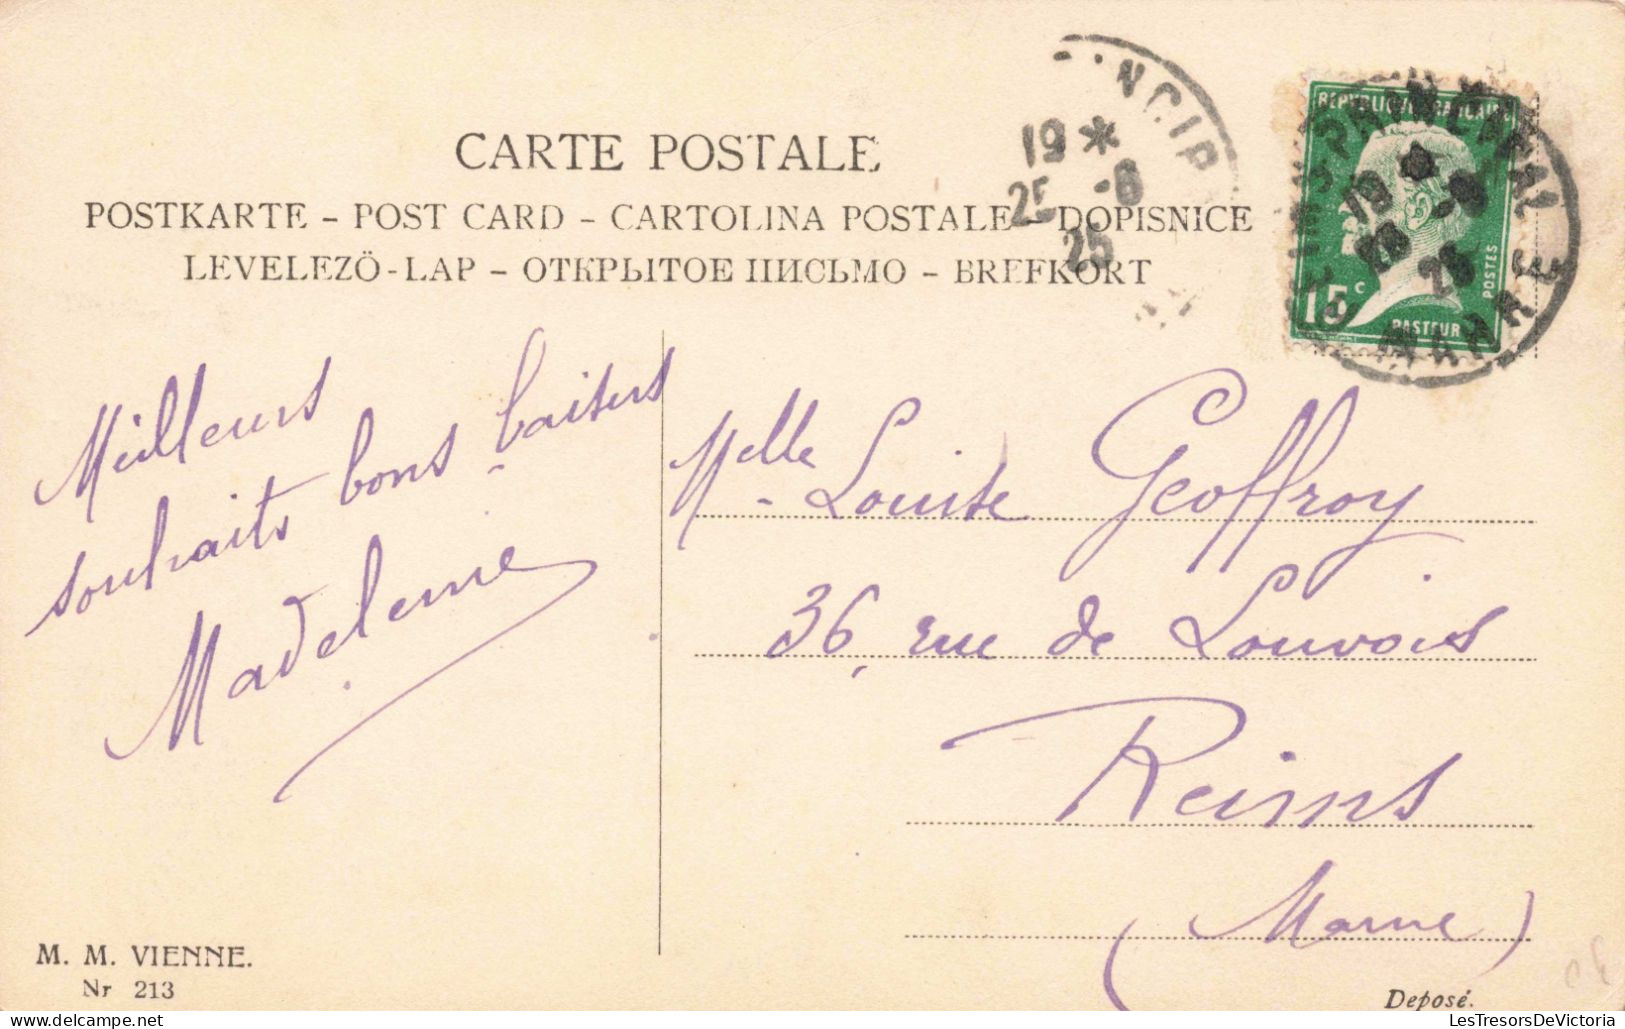 CARTE POSTALE
POSTKARTE – POST CARD – CARTOLINA POSTALE – DOPISNICE
LEVELEZÖ-LAP – ОТКРЫТОЕ ПИСЬМО – BREFKORT
NCIP
19 * -6
25
25
REPUBLIQUE FRANCAISE
15 c
POSTES
PASTEUR
PRINCIPAL
MARNE
Meilleurs
souhaits bons baisers
Madeleine
Melle Louise Geoffroy
36, rue de Louvois
Reims
(Marne)
M. M. VIENNE.
Nr 213
Deposé.
LesTresorsDeVictoria